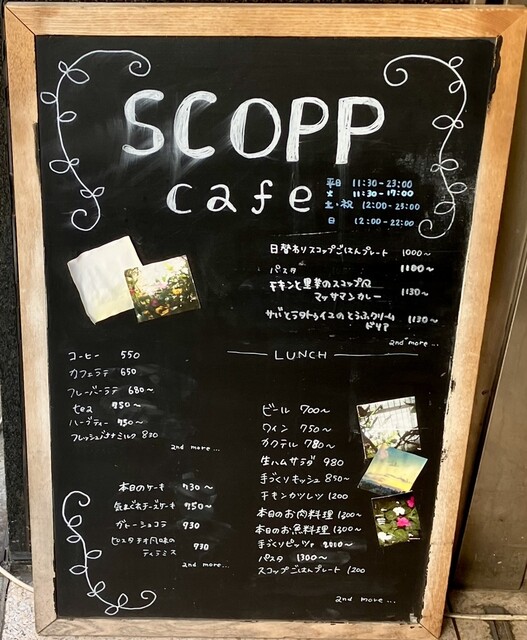 SCOPP
cafe
平日 11:30-23:00
火 11:30-17:00
土・祝 12:00-23:00
日 12:00-22:00
日替わりスコップごはんプレート 1000〜
パスタ 1100〜
チキンと里芋のスコップ風
マッサマンカレー 1130〜
サバとラタトゥイユのとうふクリーム
ドリア 1130〜
2nd more...
LUNCH
コーヒー 550
カフェラテ 650
フレーバーラテ 680〜
tea 750〜
ハーブティー 750〜
フレッシュバナナミルク 830
2nd more...
本日のケーキ 730〜
気まぐれチーズケーキ 750〜
ガトーショコラ 930
ピスタチオ風味の
ティラミス 730
2nd more...
ビール 700〜
ワイン 750〜
カクテル 780〜
生ハムサラダ 980
手づくりキッシュ 850〜
チキンカツレツ 1200
本日のお肉料理 1300〜
本日のお魚料理 1300〜
手づくりピッツァ 2000〜
パスタ 1300〜
スコップごはんプレート 1200
2nd more...